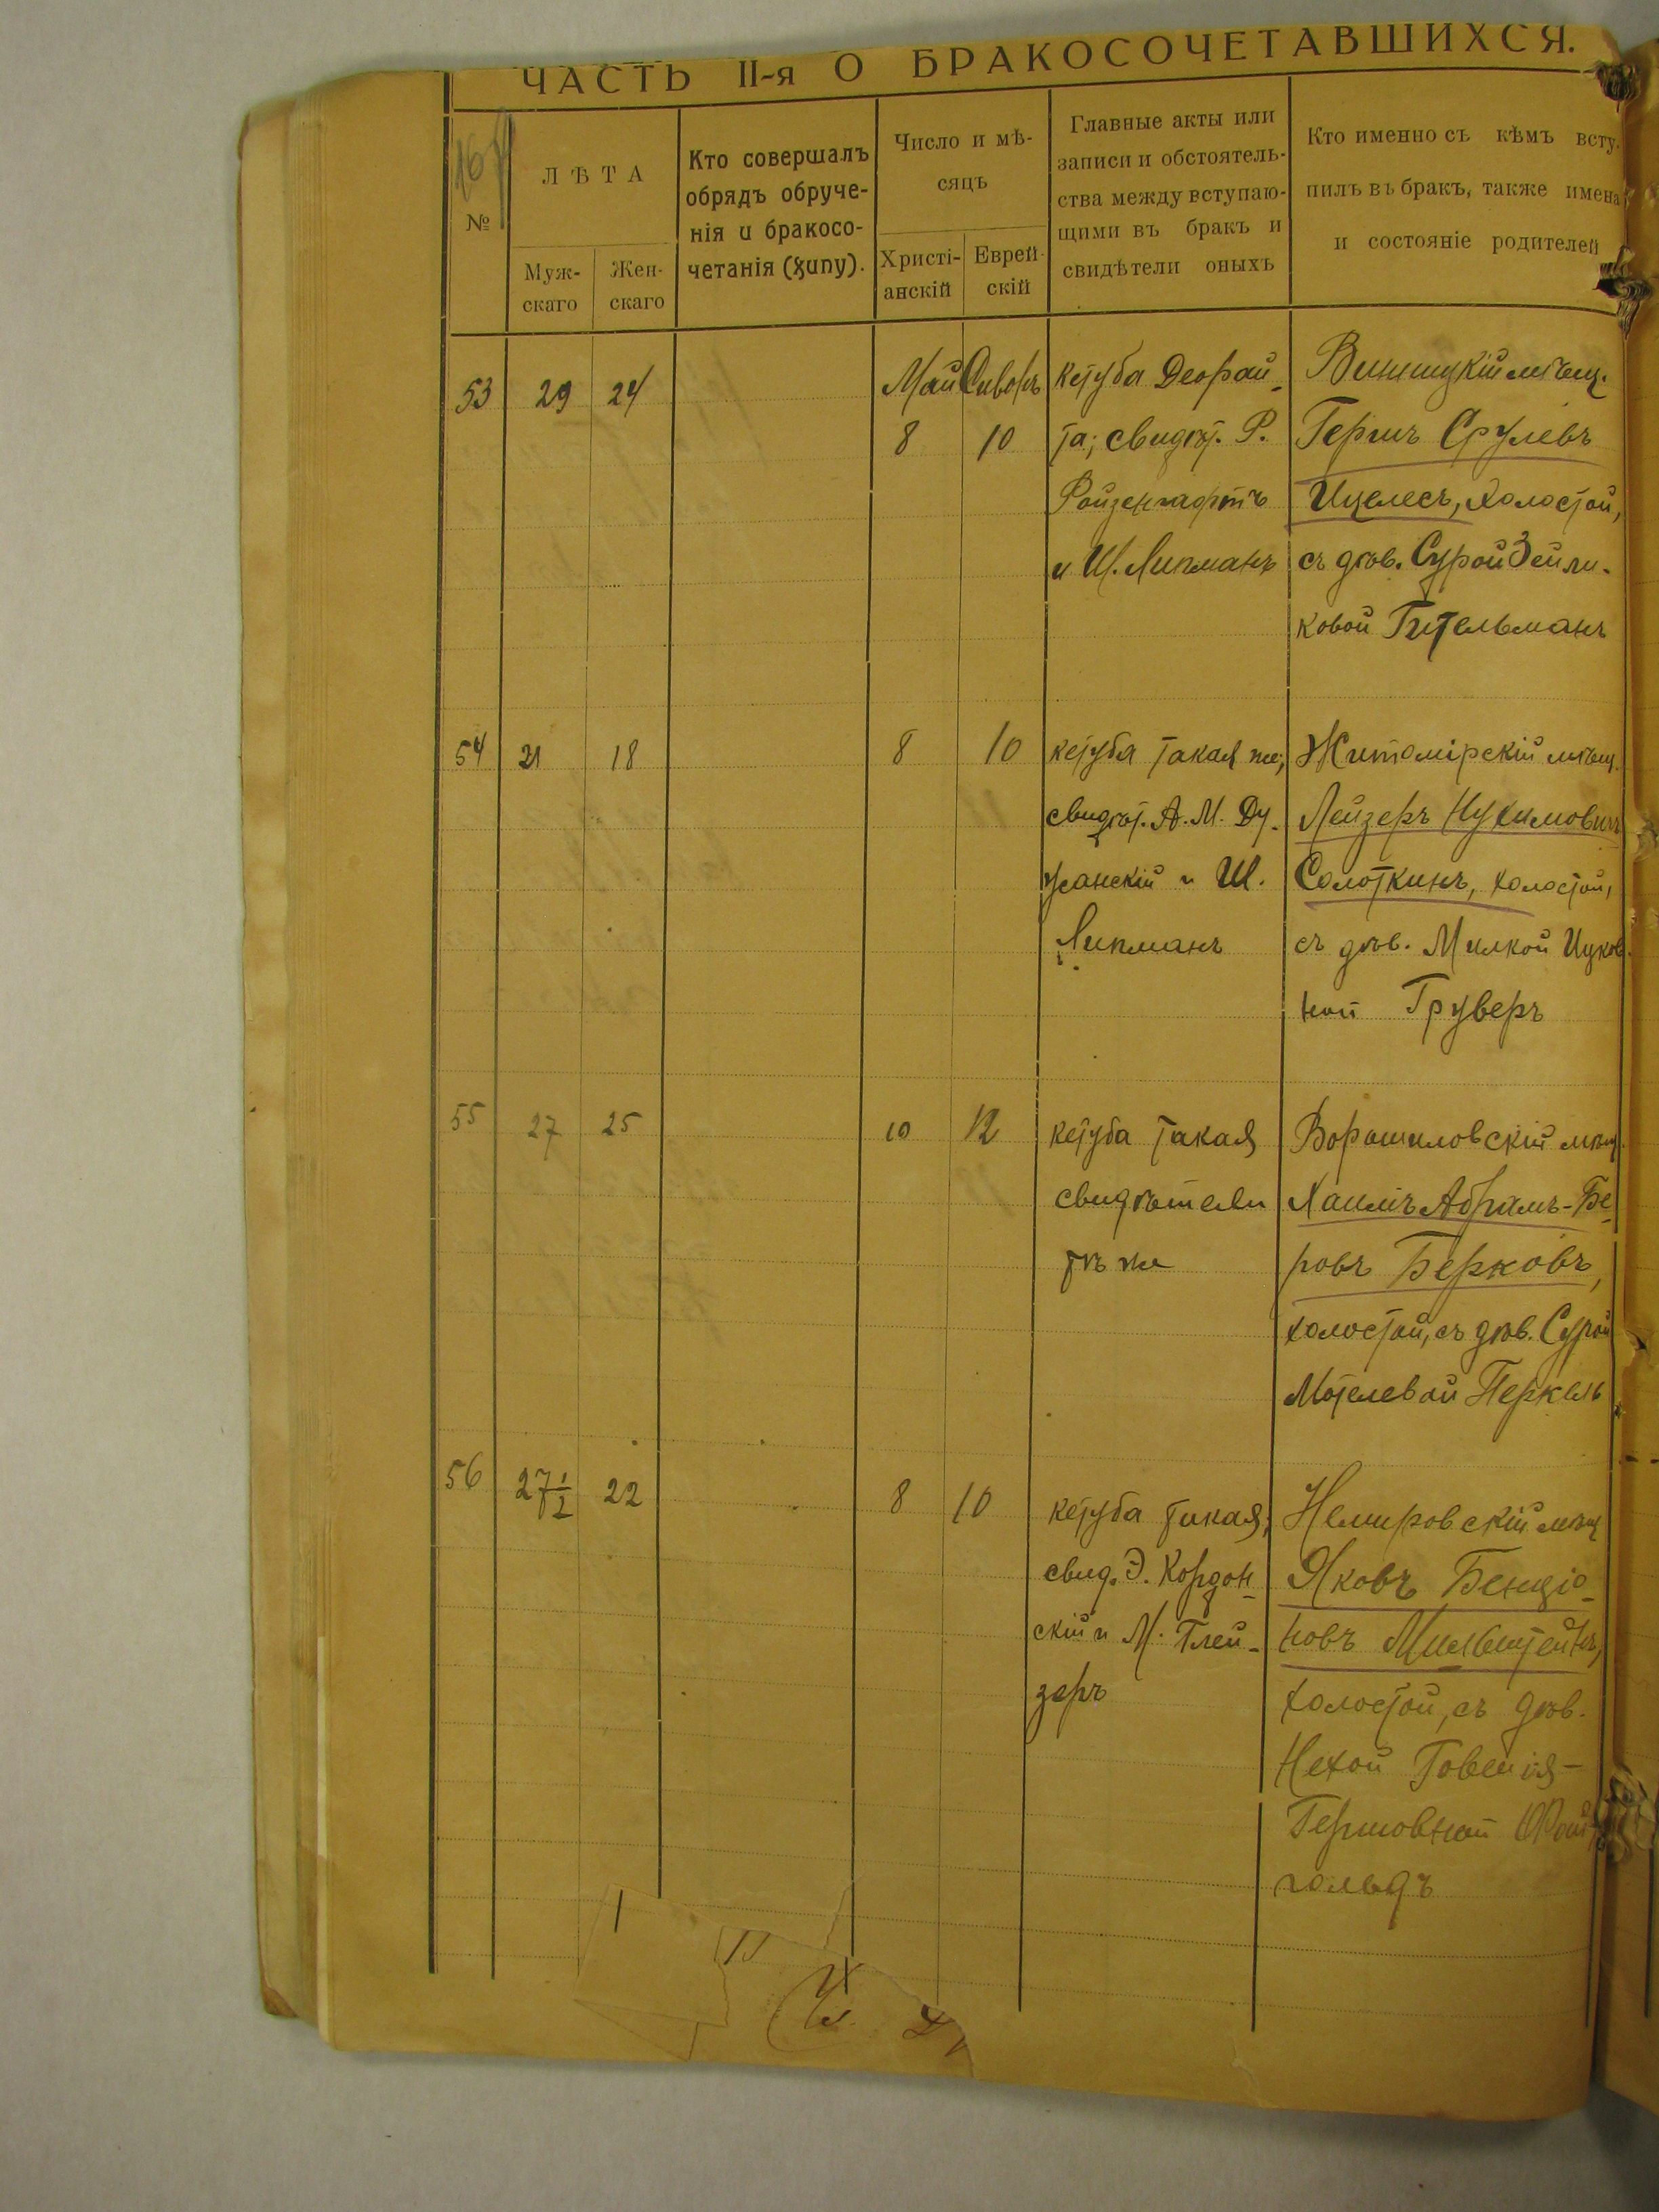 ЧАСТЬ II-я О БРАКОСОЧЕТАВШИХСЯ.
№
ЛѢТА
Муж-
скаго
Жен-
скаго
Кто совершалъ
обрядъ обруче-
нія и бракосо-
четанія (хупу).
Число и мѣ-
сяцъ
Христі-
анскій
Еврей-
скій
Главные акты или
записи и обстоятель-
ства между вступаю-
щими въ бракъ и
свидѣтели оныхъ
Кто именно съ кѣмъ всту-
пилъ въ бракъ, также имена
и состояніе родителей
53
29
24
Май
8
Сивонъ
10
кетуба Деорай-
та; свидѣт. Р.
Ройзенгафтъ
и Ш. Липманъ
Винницкій мѣщ.
Гершъ Срулевъ
Ицелесъ, холостой,
съ дѣв. Сурой Зейли-
ковой Гительманъ
54
21
18
8
10
кетуба такая же;
свидѣт. А. М. Ду-
жанскій и Ш.
Липманъ
Житомірскій мѣщ.
Лейзеръ Нухимовичъ
Солоткинъ, холостой,
съ дѣв. Милкой Ицков-
ной Груверъ
55
27
25
10
12
кетуба такая
свидѣтели
тѣ же
Ворошиловскій мѣщ.
Хаимъ Абрамъ-Бе-
ровъ Берковъ,
холостой, съ дѣв. Сурой
Мотелевой Перкель
56
27½
22
8
10
кетуба такая;
свид. Э. Кордон-
скій и М. Глей-
зеръ
Немировскій мѣщ
Яковъ Бенціо-
новъ Мильштейнъ,
холостой, съ дѣв.
Нехой
Гершовной
гольдъ